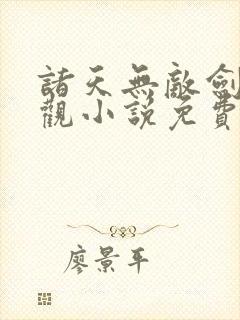 諸天無敵劍
觀小說免費
廖景平